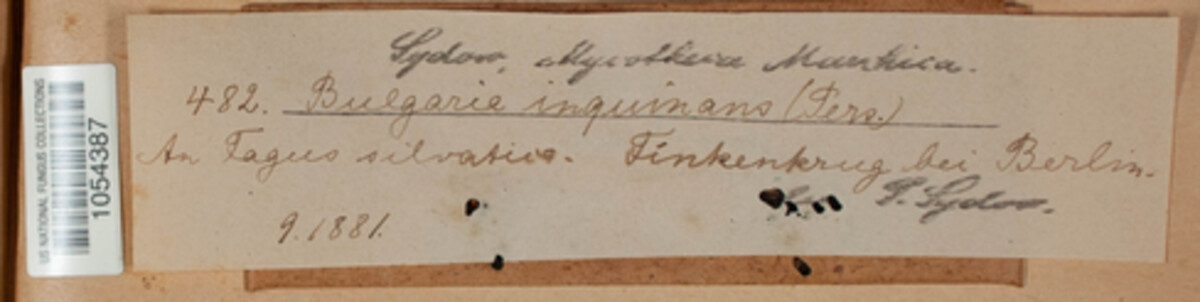 Sydow, Mycotheca Marchica.
482. Bulgaria inquinans (Pers.)
An Fagus silvatica. Finkenkrug bei Berlin.
P. Sydow.
9.1881.
US NATIONAL FUNGUS COLLECTIONS
1054387